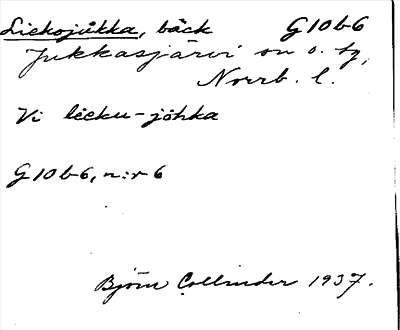 Liekojåkka, bäck G10b6
Jukkasjärvi sn o. tg,
Norrb. l.
Vi lieku-jòhka
G10b6, n:r 6
Björn Collinder 1937.